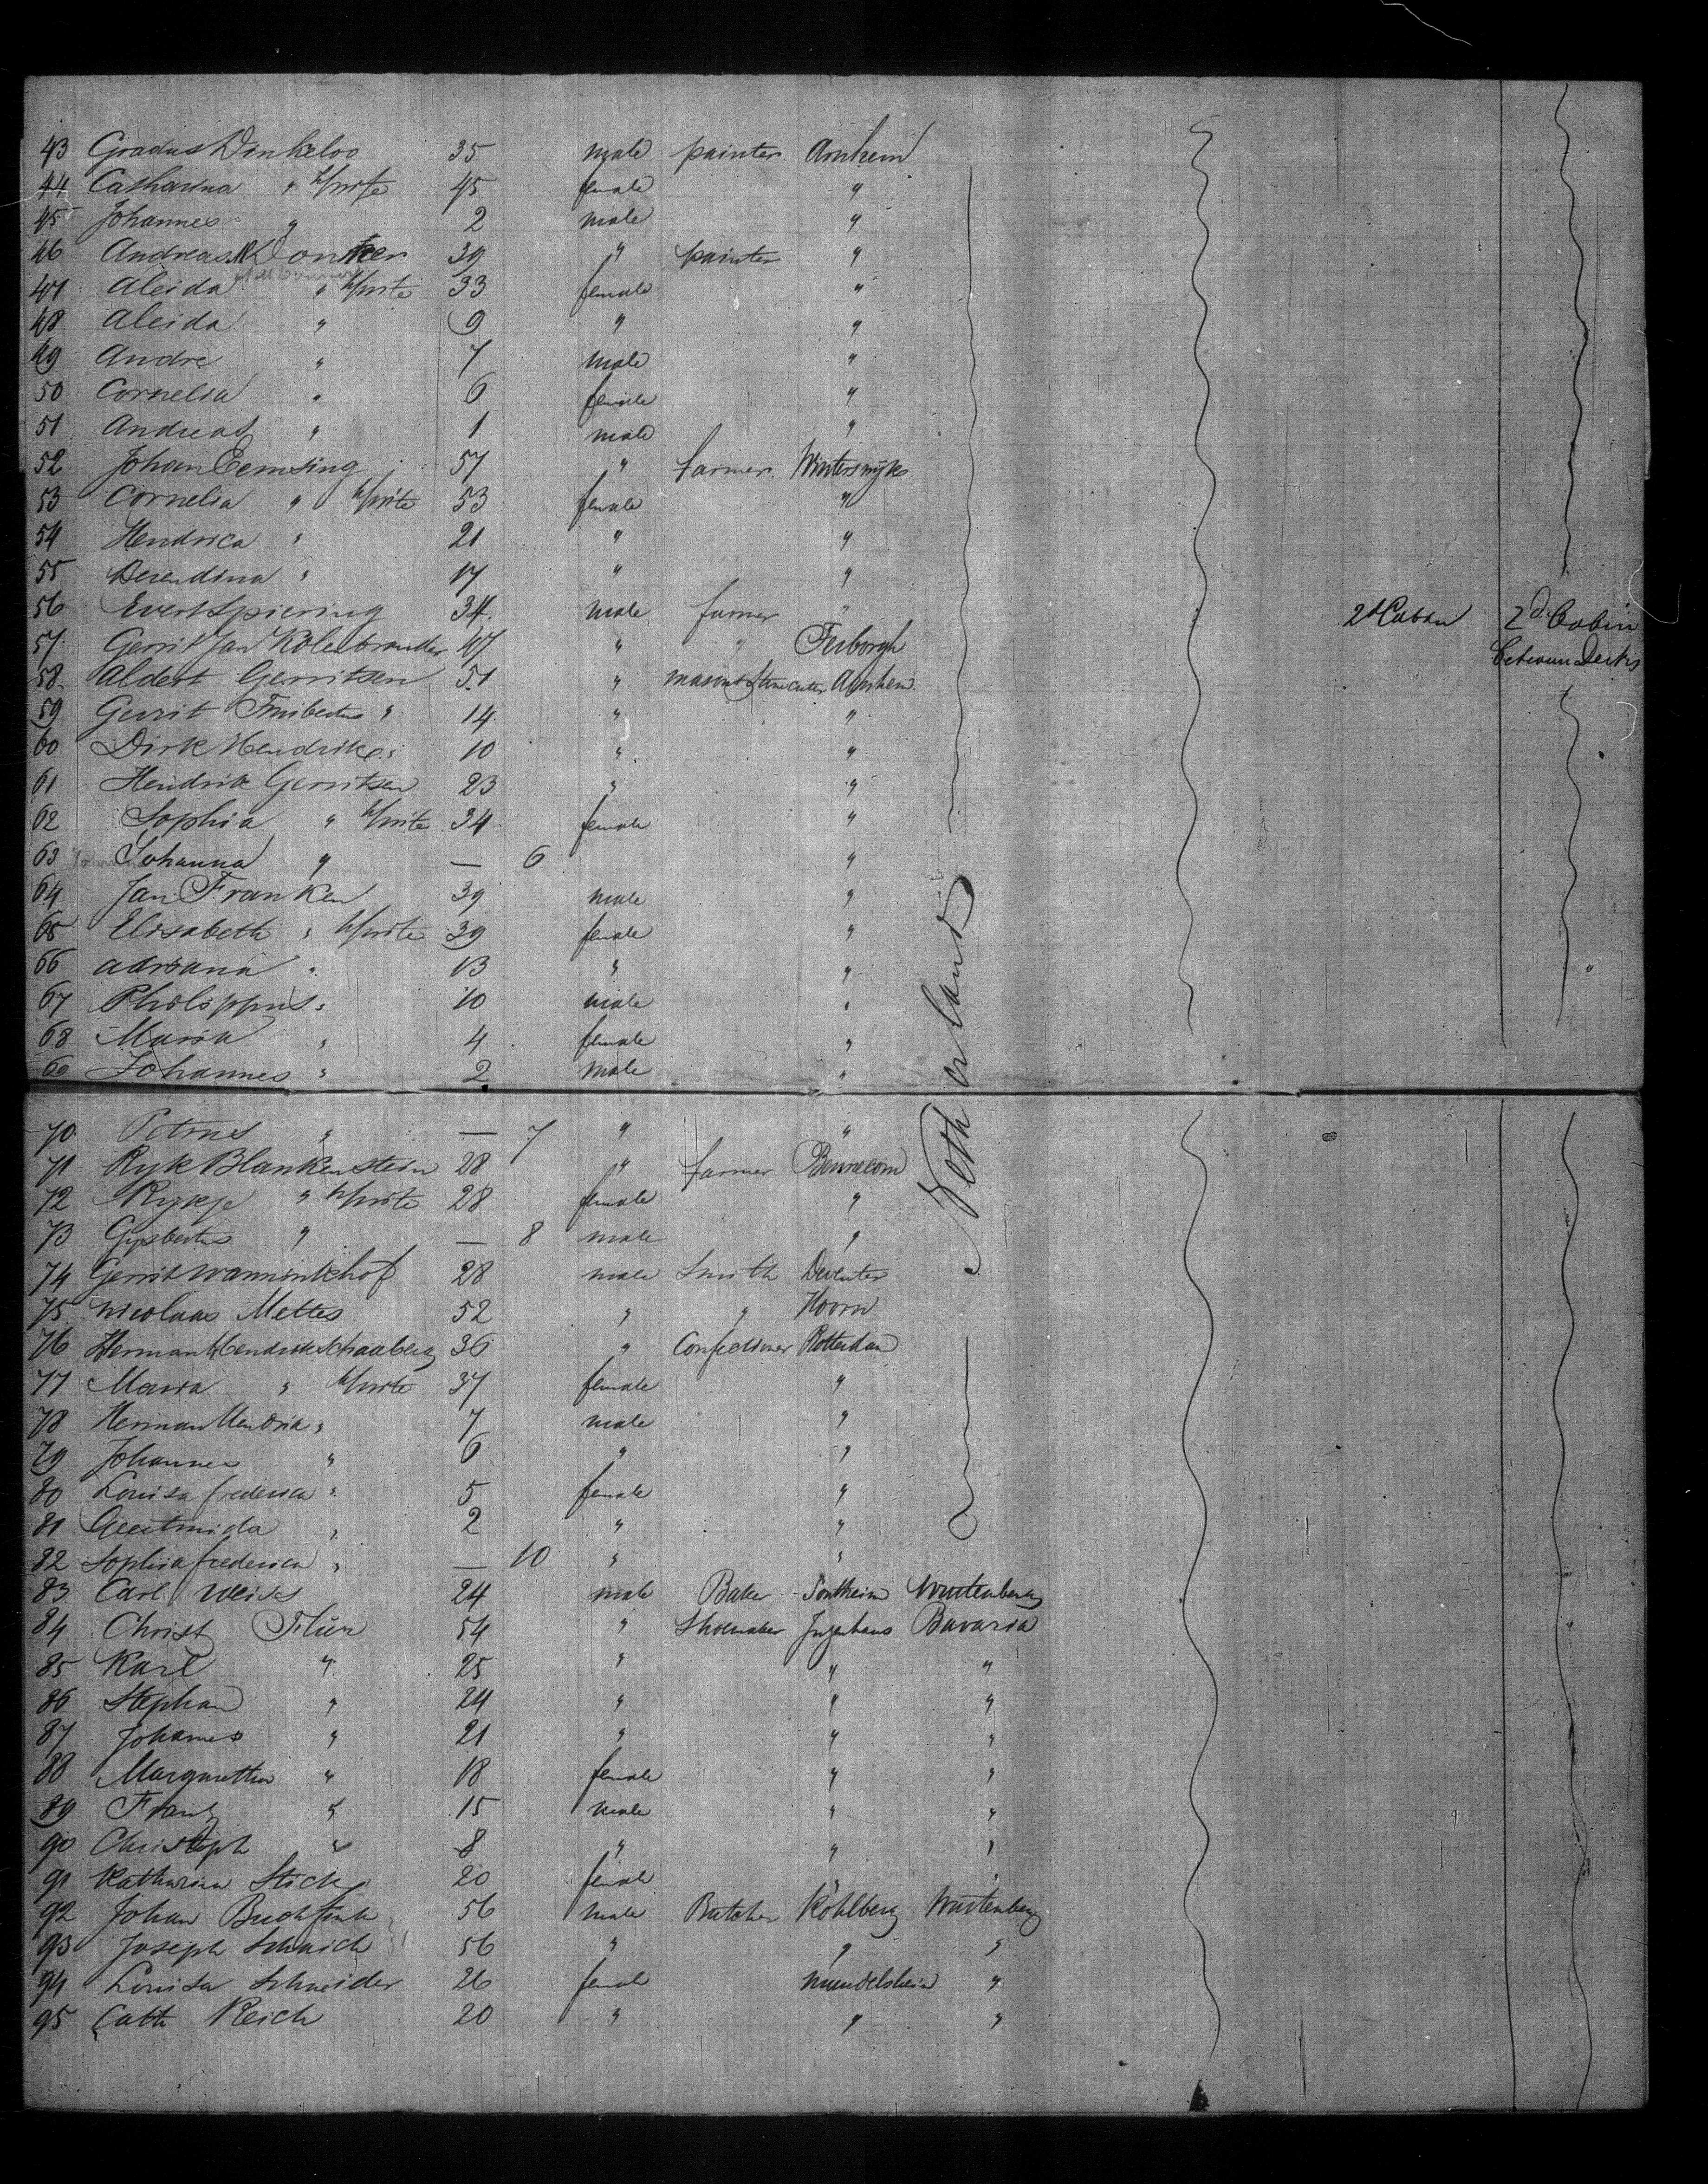 43 Gradus Dinkeloo 35 male painter Arnhem
44 Catharina " h/wife 45 female "
45 Johannes " 2 male "
46 Andreas Donker 39 " painter "
47 Aleida " h/wife 33 female "
48 Aleida " 9 " "
49 Andre " 7 male "
50 Cornelia " 6 female "
51 Andreas " 1 male "
52 Johan Eemsing 57 " farmer Winterswyk
53 Cornelia " h/wife 53 female "
54 Hendrica " 21 " "
55 Berendina " 17 " "
56 Evert Spiering 34 male farmer " 2d Cabin 2d Cabin
57 Gerrit Jan Kolenbrander 47 " " Terborgh between Decks
58 Aldert Gerritsen 51 " mason & stone cutter Arnhem
59 Gerrit " 14 " "
60 Dirk Hendrik " 10 " "
61 Hendrik Gerritsen 23 " "
62 Sophia " h/wife 34 female "
63 Johanna " — 6 "
64 Jan Franken 39 male "
65 Elisabeth " h/wife 39 female "
66 adriana " 13 " "
67 Philippus " 10 male "
68 Maria " 4 female "
69 Johannes " 2 male "
Netherland
70 Petrus " — 7 " "
71 Ryk Blankenstein 28 " farmer Bennecom
72 Rykje " h/wife 28 female "
73 Gysbertus " — 8 male "
74 Gerrit Wanninkhof 28 male Smith Deventer
75 Nicolaas Mettes 52 " " Hoorn
76 Herman Hendrik Schaaberg 36 " Confectioner Rotterdam
77 Maria " h/wife 37 female "
78 Herman Hendrik " 7 male "
79 Johannes " 6 " "
80 Louisa frederica " 5 female "
81 Geertruida " 2 " "
82 Sophia frederica " — 10 " "
83 Carl Weiss 24 male Baker Sontheim Wurtenberg
84 Christ Flür 54 " Shoemaker Bavaria
85 Karl " 25 " " "
86 Stephan " 24 " " "
87 Johannes " 21 " " "
88 Margaretha " 18 female " "
89 Frantz " 15 male " "
90 Christoph " 8 " " "
91 Katharina Stick 20 female " "
92 Johan Buchfink 56 male Butcher Kohlberg Wurtenberg
93 Joseph Schaich 56 " " "
94 Louisa Schneider 26 female Muendelsheim "
95 Cath Reich 20 " " "